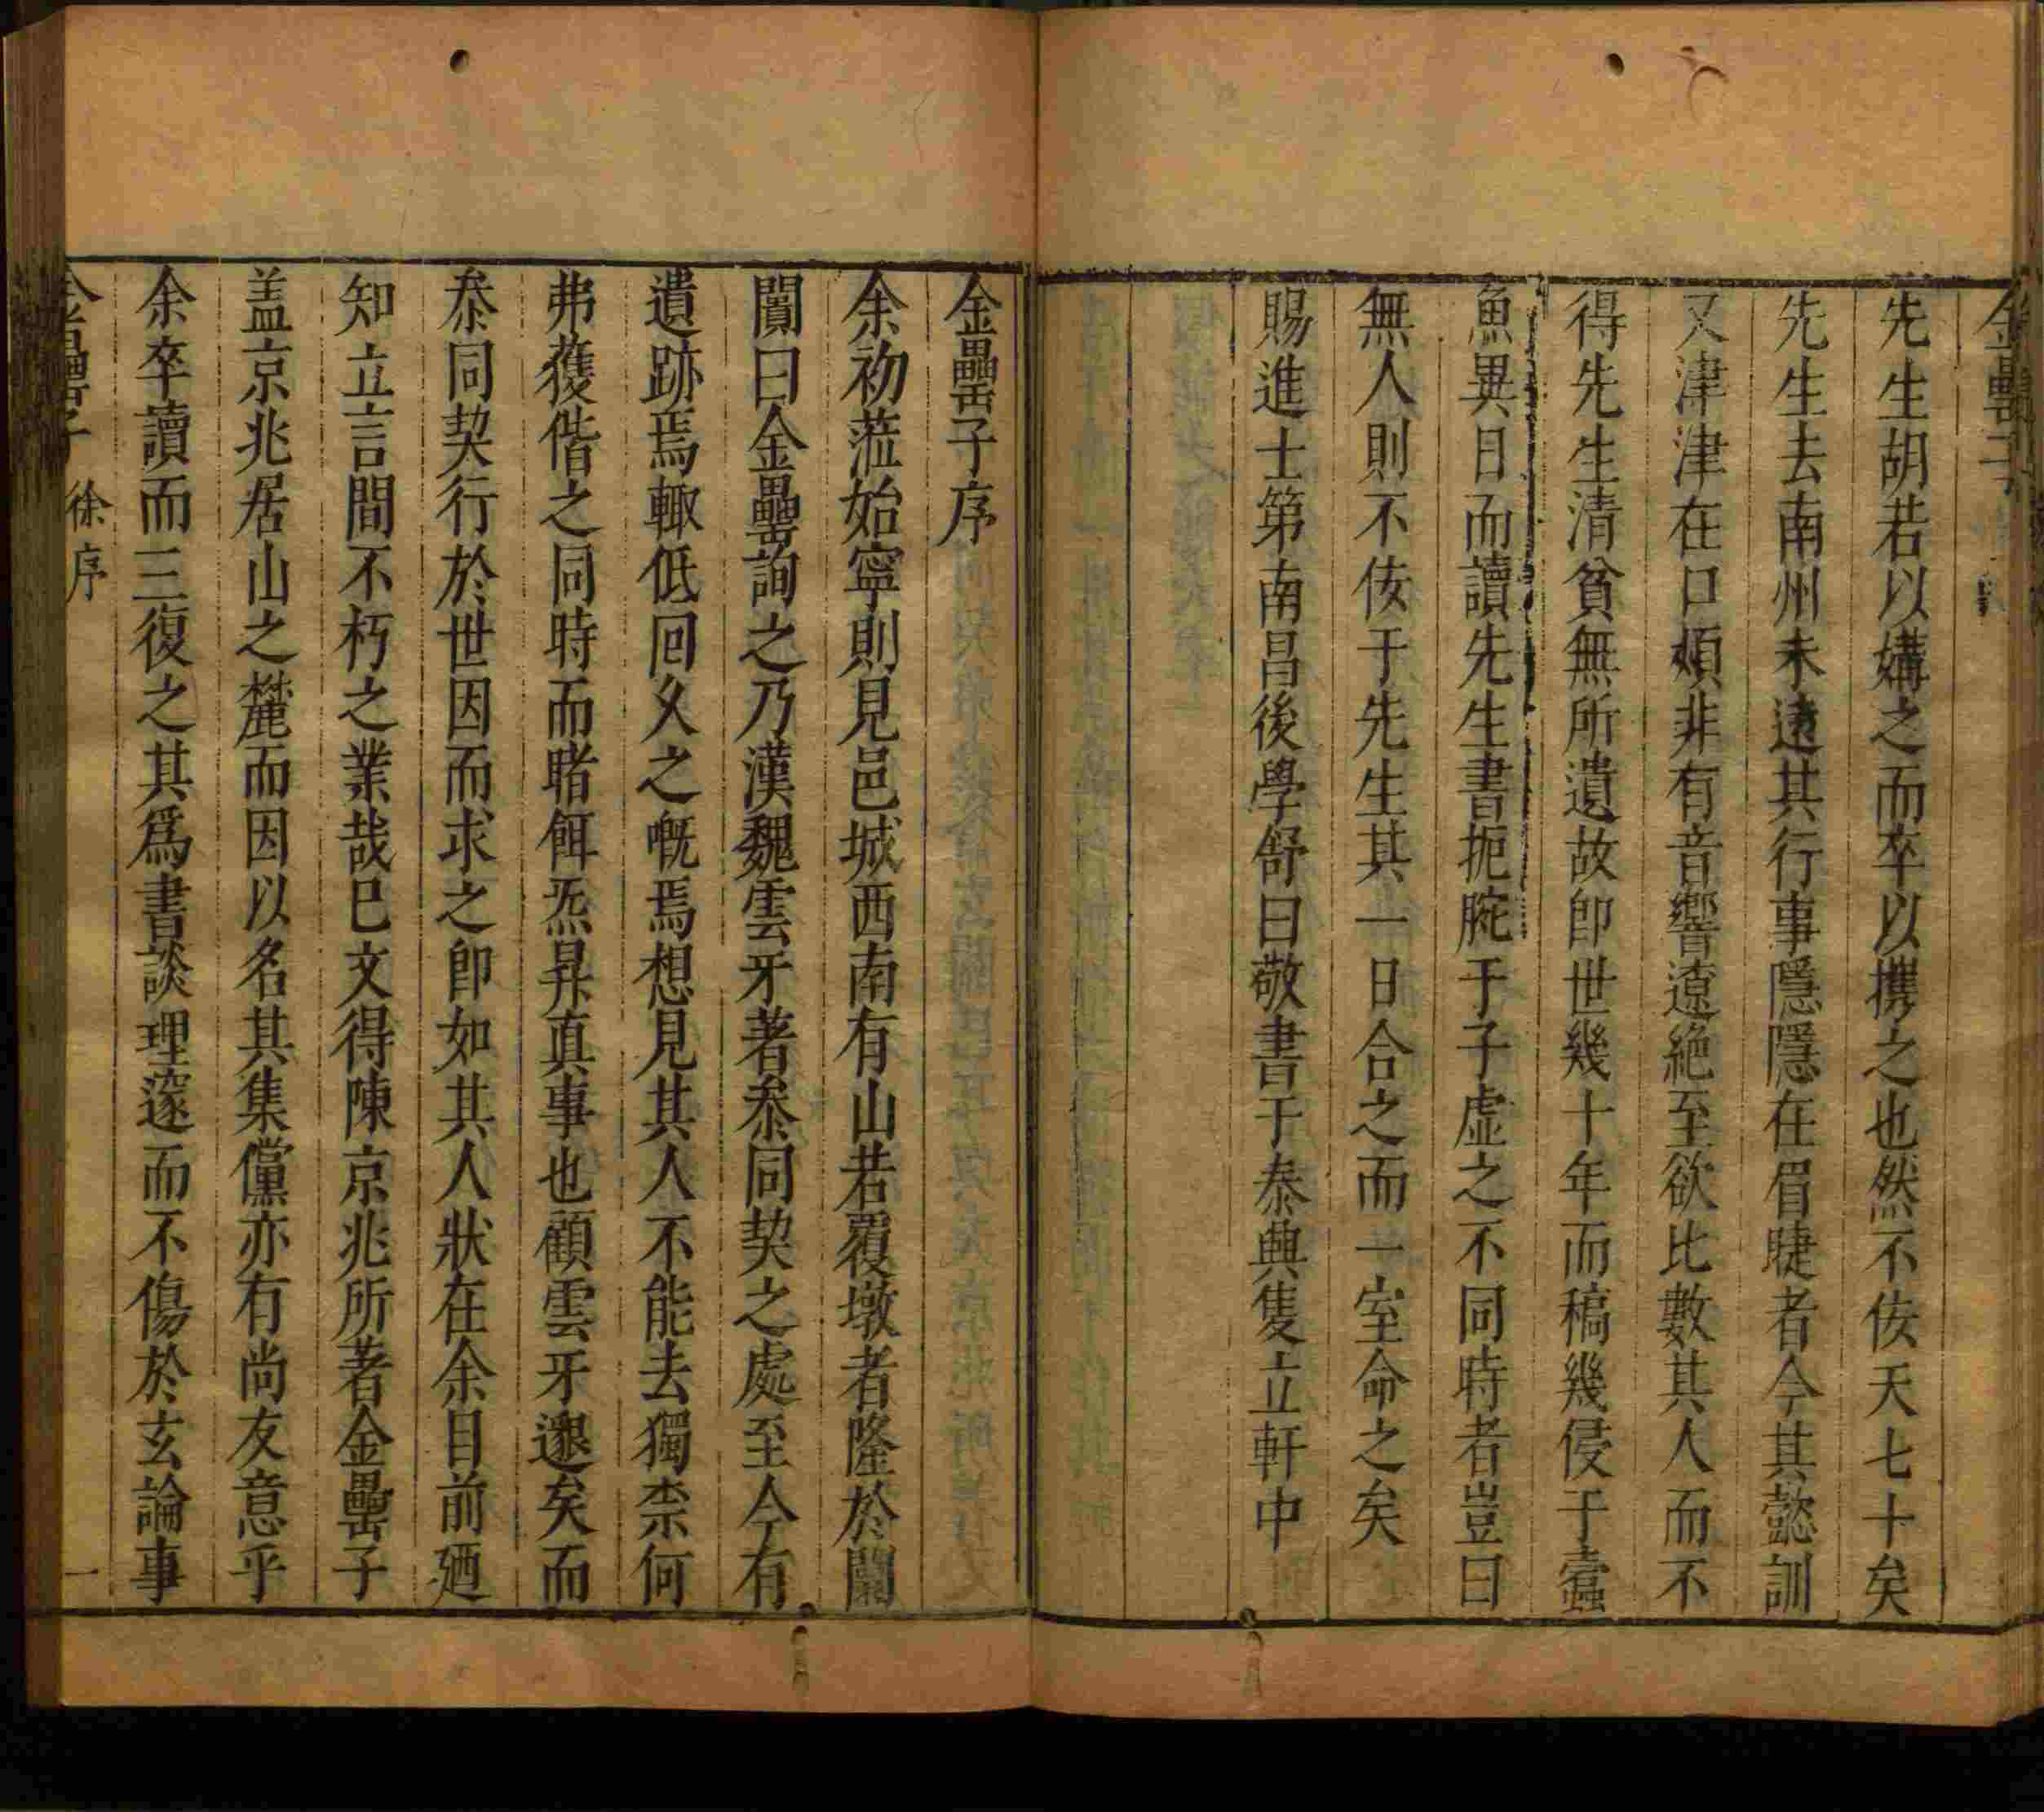 金罍子
先生胡若以媾之而卒以攜之也然不佞天七十矣
先生去南州未遠其行事隱隱在眉睫者今其懿訓
又津津在口頰非有音響遼絕至欲比數其人而不
得先生清貧無所遺故卽世幾十年而稿幾侵于蠹
魚異日而讀先生書扼腕于子虛之不同時者豈曰
無人則不佞于先生其一日合之而一室命之矣
賜進士第南昌後學舒曰敬書于泰興隻立軒中
金罍子序
余初蒞始寧則見邑城西南有山若覆墩者隆於闤
闠曰金罍詢之乃漢魏雲牙著叅同契之處至今有
遺跡焉輙低回久之嘅焉想見其人不能去獨柰何
弗獲偕之同時而睹餌炁昇真事也顧雲牙邈矣而
叅同契行於世因而求之卽如其人狀在余目前廼
知立言間不朽之業哉巳文得陳京兆所著金罍子
盖京兆居山之麓而因以名其集儻亦有尚友意乎
余卒讀而三復之其爲書談理邃而不傷於玄論事
金罍子 徐序 一